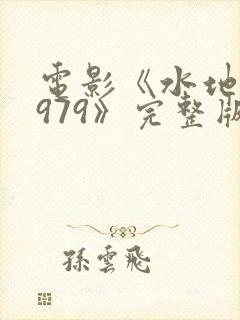 電影《水地
979》完整版
孫雲飛